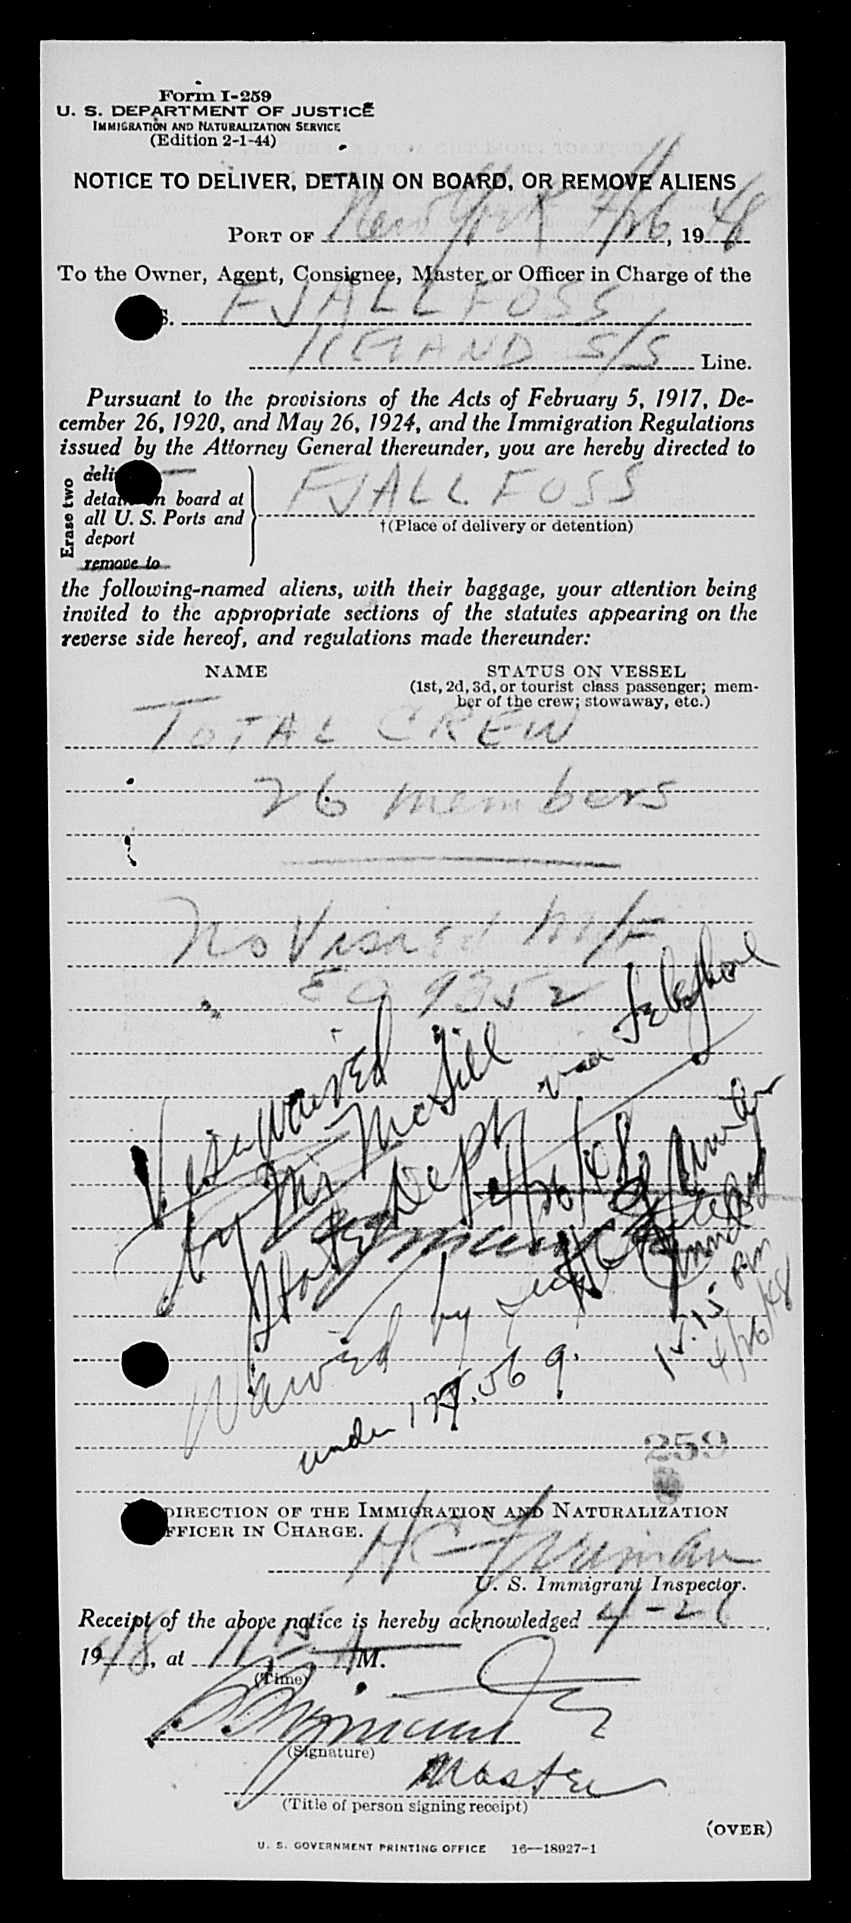 Form I-259
U. S. DEPARTMENT OF JUSTICE
IMMIGRATION AND NATURALIZATION SERVICE
(Edition 2-1-44)
NOTICE TO DELIVER, DETAIN ON BOARD, OR REMOVE ALIENS
PORT OF New York 4/26, 1948
To the Owner, Agent, Consignee, Master, or Officer in Charge of the
S. FJALL FOSS
ICELAND S/S Line.
Pursuant to the provisions of the Acts of February 5, 1917, De-
cember 26, 1920, and May 26, 1924, and the Immigration Regulations
issued by the Attorney General thereunder, you are hereby directed to
Erase two
deli
detain on board at
all U. S. Ports and
deport
remove to
FJALL FOSS
†(Place of delivery or detention)
the following-named aliens, with their baggage, your attention being
invited to the appropriate sections of the statutes appearing on the
reverse side hereof, and regulations made thereunder:
NAME STATUS ON VESSEL
(1st, 2d, 3d, or tourist class passenger; mem-
ber of the crew; stowaway, etc.)
TOTAL CREW
26 members
No Visaed M/F
EO 9352
Visa waived
by Mr. McGill
State Dept via Telephone
4/26/48
Waived by
12.15 PM
4/26/48
under 175.56 9.
259
DIRECTION OF THE IMMIGRATION AND NATURALIZATION
OFFICER IN CHARGE.
H C
U. S. Immigrant Inspector.
Receipt of the above notice is hereby acknowledged 4-26
1948, at 11 15 A M.
(Time)
(Signature)
Master
(Title of person signing receipt)
(OVER)
U. S. GOVERNMENT PRINTING OFFICE 16—18927-1